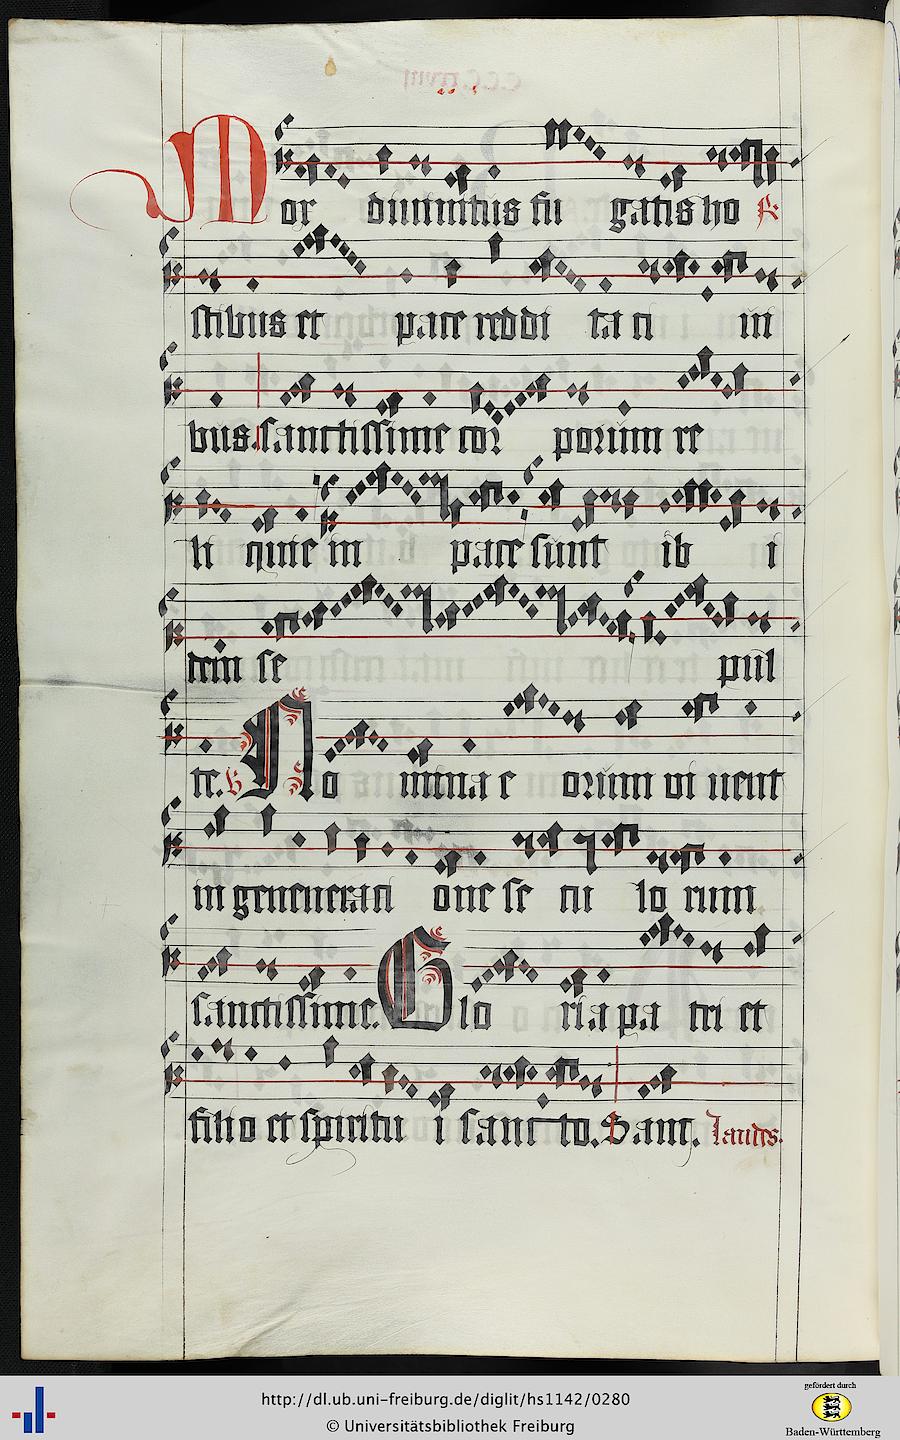 Mox diuinitus fu gatis ho R
stibus et pace reddi ta ci ui
bus. sanctissime cor porum re
li quie in pace sunt ib i
dem se pul
te. V No mina e orum ui uent
in generati one se cu lo rum
sanctissime. Glo ria pa tri et
filio et spiritu i sanc to. Sanc. laudes.
http://dl.ub.uni-freiburg.de/diglit/hs1142/0280
© Universitätsbibliothek Freiburg
gefördert durch
Baden-Württemberg